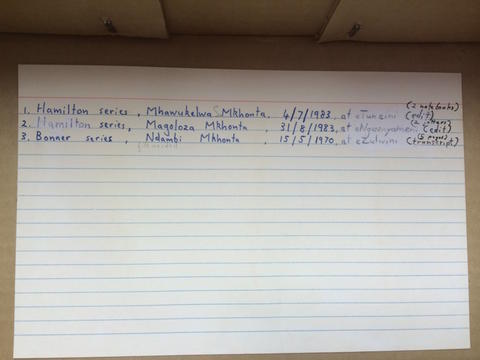 (2 notebooks)
1. Hamilton series, Mhawukelwa S Mkhonta, 4/7/1983, at (edit)
2. Hamilton series, Magoloza Mkhonta, 31/8/1983, at (edit)
(5 pages)
3. Bonner series, Ndambi Mkhonta, 15/5/1970, at eZulwini (transcript)